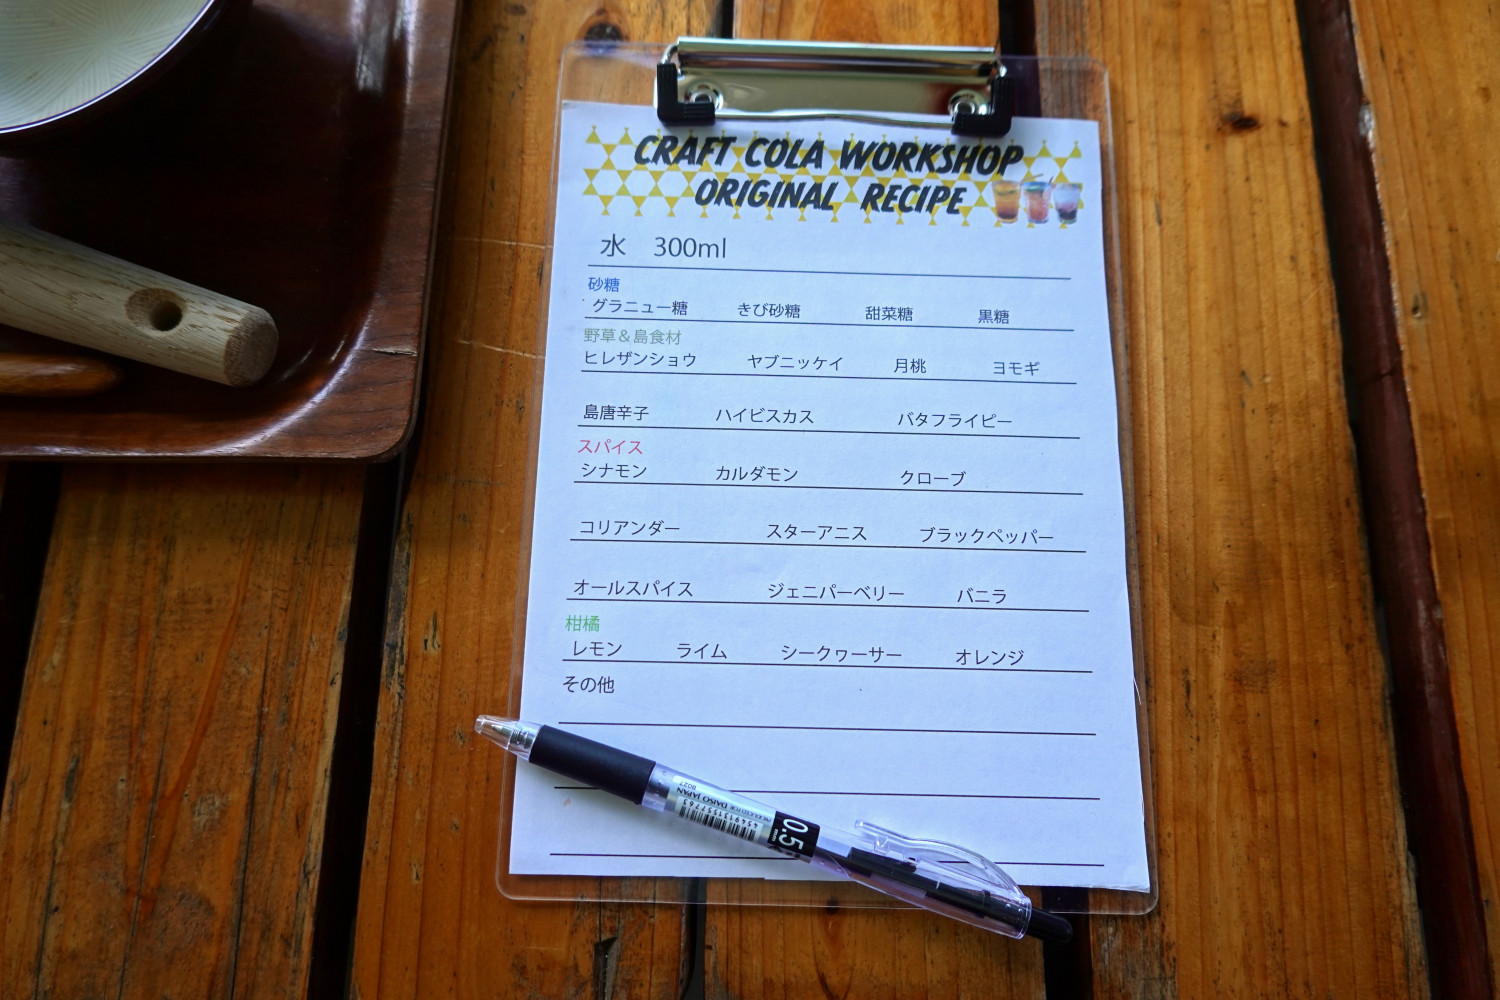 CRAFT COLA WORKSHOP
ORIGINAL RECIPE
水 300ml
砂糖
グラニュー糖 きび砂糖 甜菜糖 黒糖
野草＆島食材
ヒレザンショウ ヤブニッケイ 月桃 ヨモギ
島唐辛子 ハイビスカス バタフライピー
スパイス
シナモン カルダモン クローブ
コリアンダー スターアニス ブラックペッパー
オールスパイス ジェニパーベリー バニラ
柑橘
レモン ライム シークヮーサー オレンジ
その他
DAISO JAPAN
4549131557763
0.5